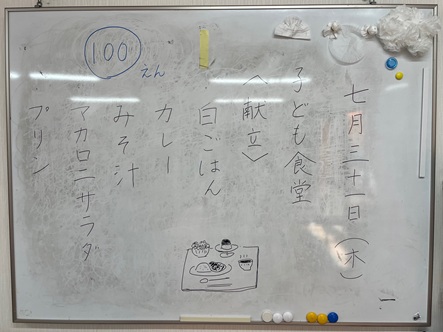 七月三十一日（木）
子ども食堂
〈献立〉
白ごはん
カレー
みそ汁
マカロニサラダ
プリン
100えん